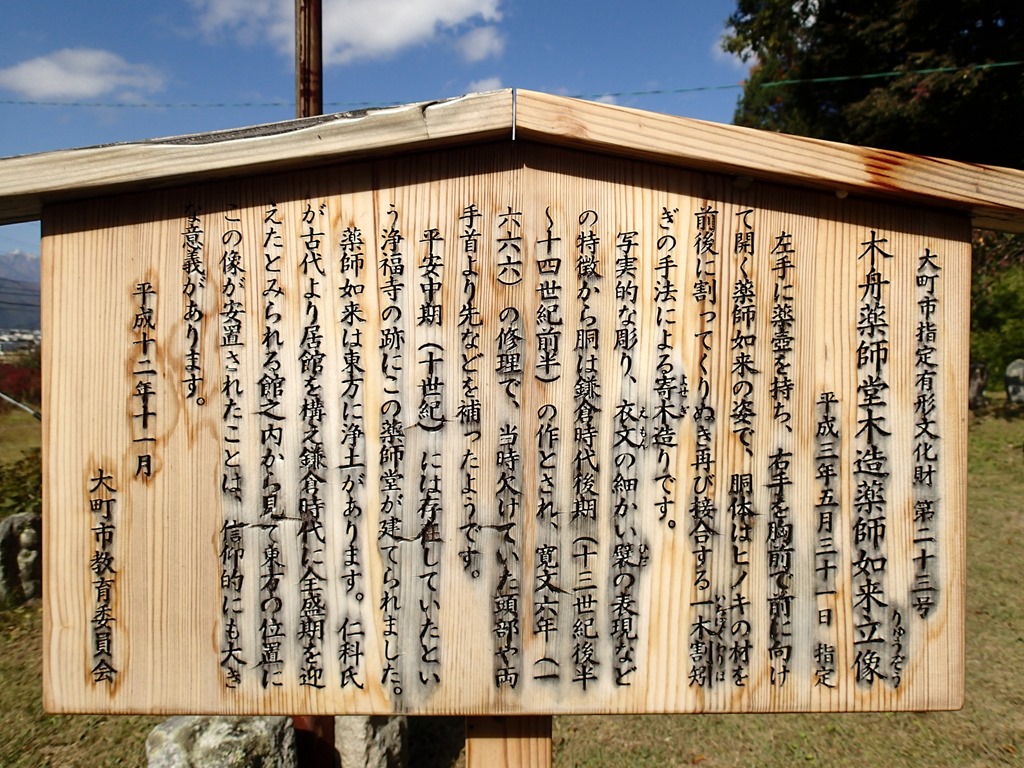 大町市指定有形文化財 第二十三号
木舟薬師堂木造薬師如来立像
りゅうぞう
平成三年五月三十一日 指定
左手に薬壺を持ち、右手を胸前で前に向け
て開く薬師如来の姿で、胴体はヒノキの材を
前後に割ってくりぬき再び接合する一木割矧
いちぼくわりは
ぎの手法による寄木造りです。
よせぎ
写実的な彫り、衣文の細かい襞の表現など
えもん
ひだ
の特徴から胴は鎌倉時代後期（十三世紀後半
〜十四世紀前半）の作とされ、寛文六年（一
六六六）の修理で、当時欠けていた頭部や両
手首より先などを補ったようです。
平安中期（十世紀）には存在していたとい
う浄福寺の跡にこの薬師堂が建てられました。
薬師如来は東方に浄土があります。仁科氏
が古代より居館を構え鎌倉時代に全盛期を迎
えたとみられる館之内から見て東方の位置に
この像が安置されたことは、信仰的にも大き
な意義があります。
平成十二年十一月
大町市教育委員会